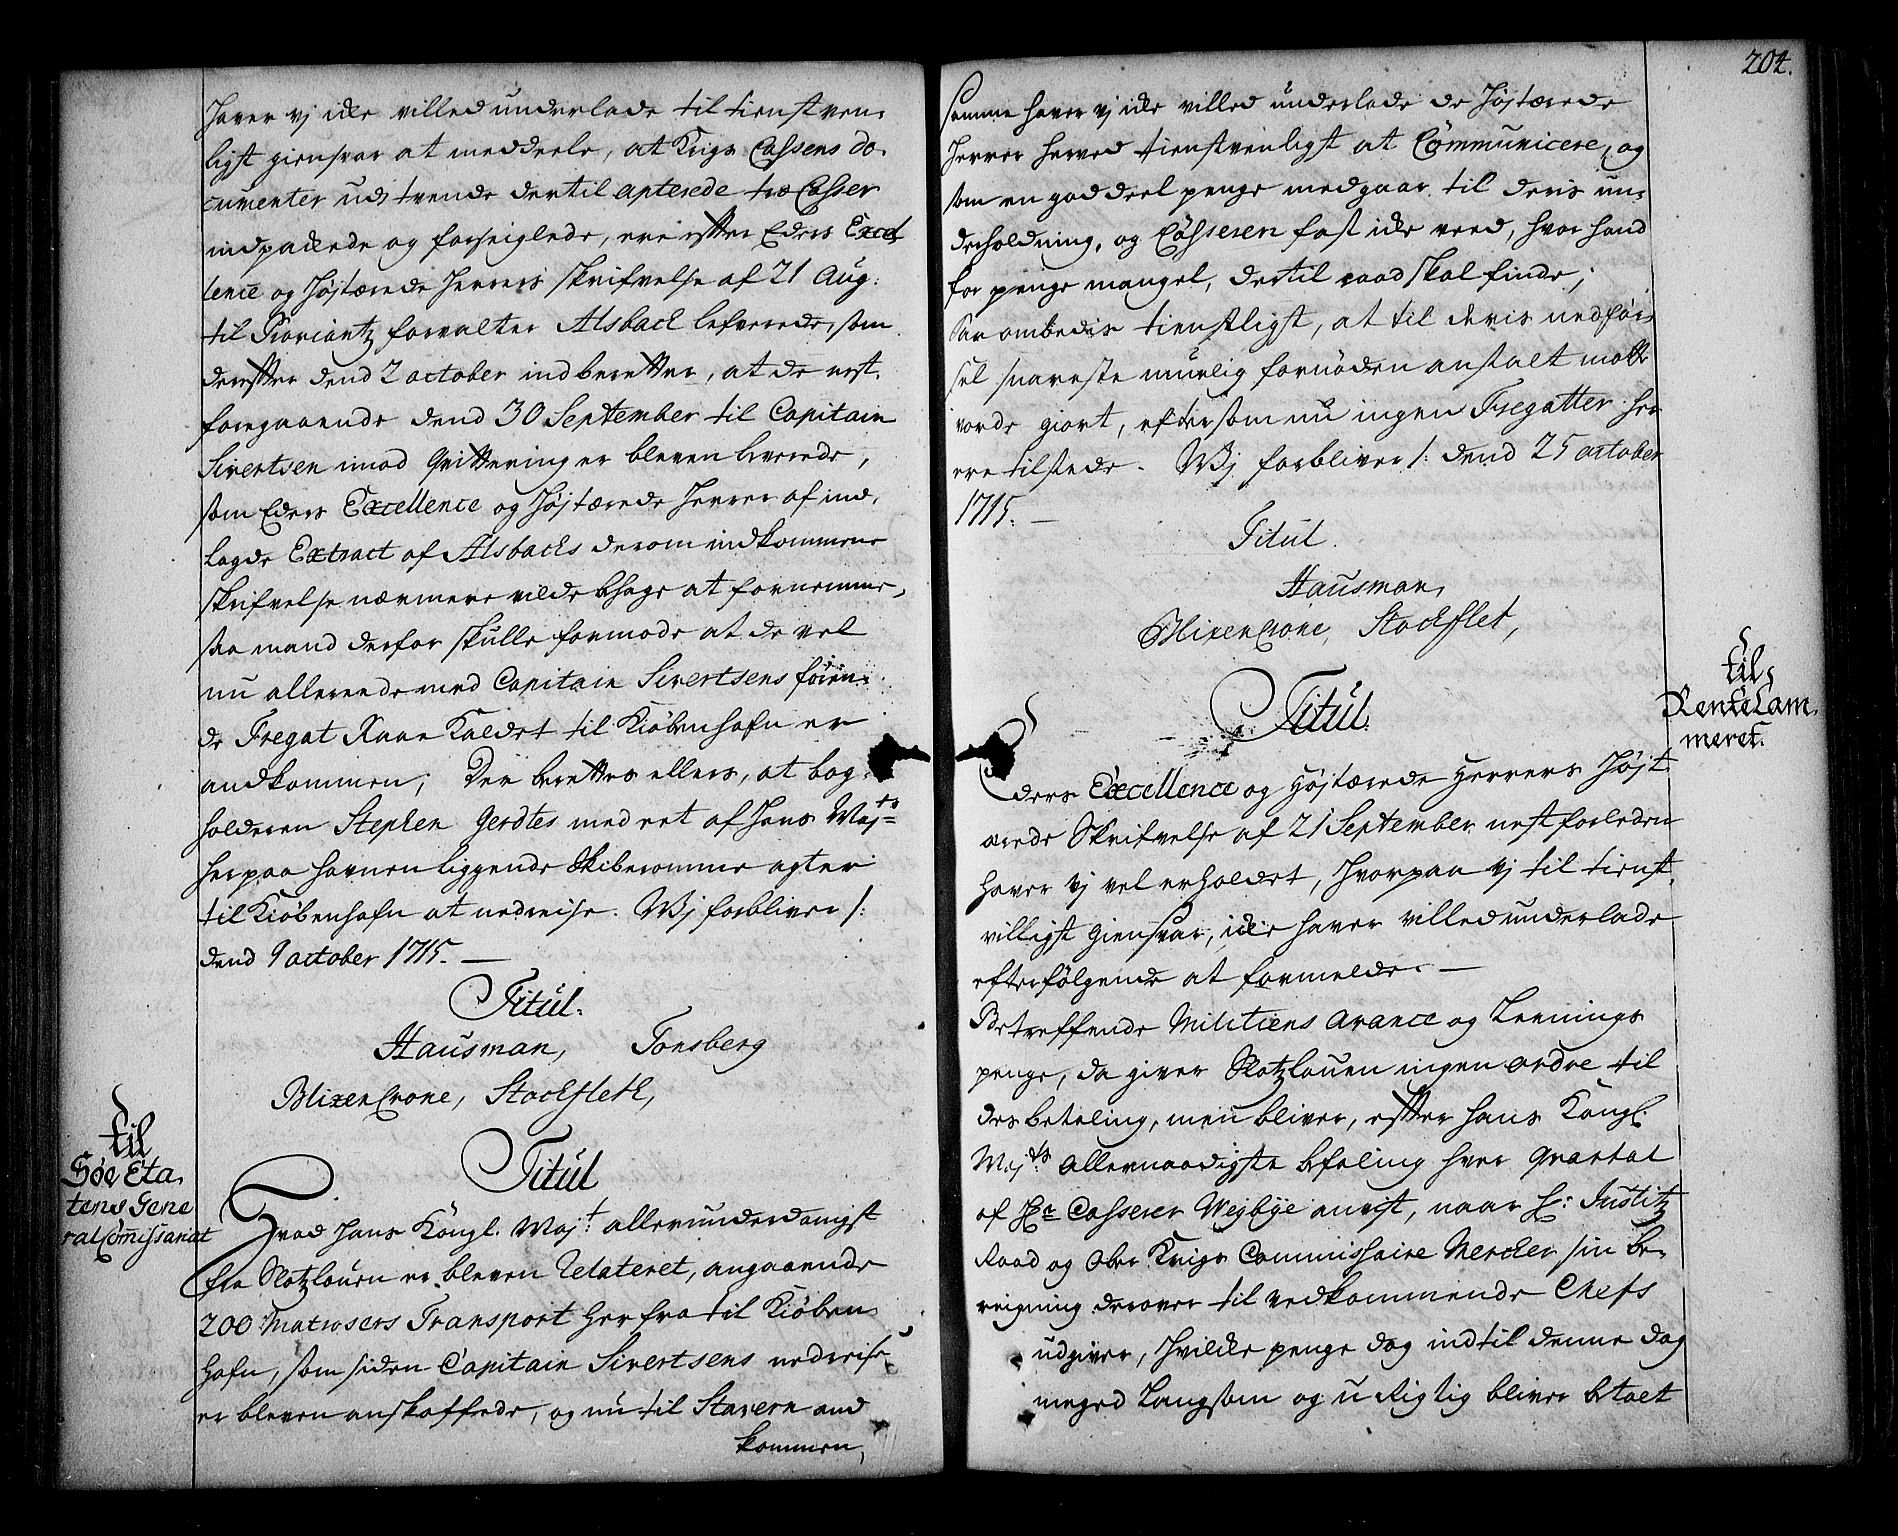 haver vj icke villed underlade til tienstven,
ligst giensvar at meddeele, at Krigs Cassens do,
cumenter udj trende dertil apterede træ Casser
indpackede og forseiglede, ere efter Eders Excel
lence og Højtærede Herrers skrifvelse af 21 Aug:
til Proviantz forvalter Alsback lefverede, som
derefter dend 2 october indberetter, at de nest,
foregaaende dend 30 September til Capitain
Sivertsen imod Qvittering er bleven leverede,
som Eders Excellence og Højtærede Herrer af ind,
lagde Extract af Alsbacks derom indkommene
skrifvelse nærmere vilde behage at fornemme,
saa mand derfor skulle formode at de vel
nu allereede med Capitain Sivertsens føren,
de Fregat Raae Kaldet til Kiøbenhafn er
andkommen; Der berettes ellers, at bog,
holderen Stephen Gerdtes med eet af Hans Majts
her paa hafnen liggende Skiberomme agter
til Kiøbenhafn at nedreise. Wj forbliver /:
dend 9 october 1715. —
Titul.
Hausman, Tonsberg
Blixencrone, Stockfleth,
til
Søe Eta,
tens Gene
ral Commissariat
Titul
Hvad Hans Kongl. Majt allerunderdanigst
fra Slotzloven er bleven Relateret, angaaende
200 Matrosers Transport her fra til Kiøben
hafn, som siden Capitain Sivertsens nedreise
er bleven anskaffede, og nu til Stavern and
kommen,
204.
samme haver vj icke villed underlade de Højtærede
Herrer herved tienstvenligst at Communicere, og
som en god deel penge medgaar til deris un,
derholdning, og Casseren fast icke veed, hvor hand
for penge mangel, dertil raad skal finde;
saa ombedis tienstligst, at til deris nedfør,
sel snareste muelig fornøden anstalt motte
vorde giort, eftersom nu ingen Fregatter her
ere tilstede. Wj forbliver /: dend 25 october
1715. —
Titul.
Hausman,
Blixencrone, Stockflet,
til
Rentekam
meret.
Titul.
Eders Excellence og Højtærede Herrers Højt
ærede Skrifvelse af 21 September nestforleden
haver vj vel erholdet, hvorpaa vj til tienst,
villigst giensvar, icke haver villed underlade
efterfølgende at formelde. —
Betreffende Militiens Avance og Lennings
penge, da giver Slotzloven ingen ordre til
des betaling, men bliver, efter hans Kongl.
Majts allernaadigste befaling hver Qvartal
af Hr Casserer Wejbye anvist, naar Hr: Justitz
Raad og Ober Krigs Commissaire Mercker sin be,
reigning derover til vedkommende Chefs
udgiver, hvilcke penge dog indtil denne dag
meged Langsom og u Rigtig bliver betalt